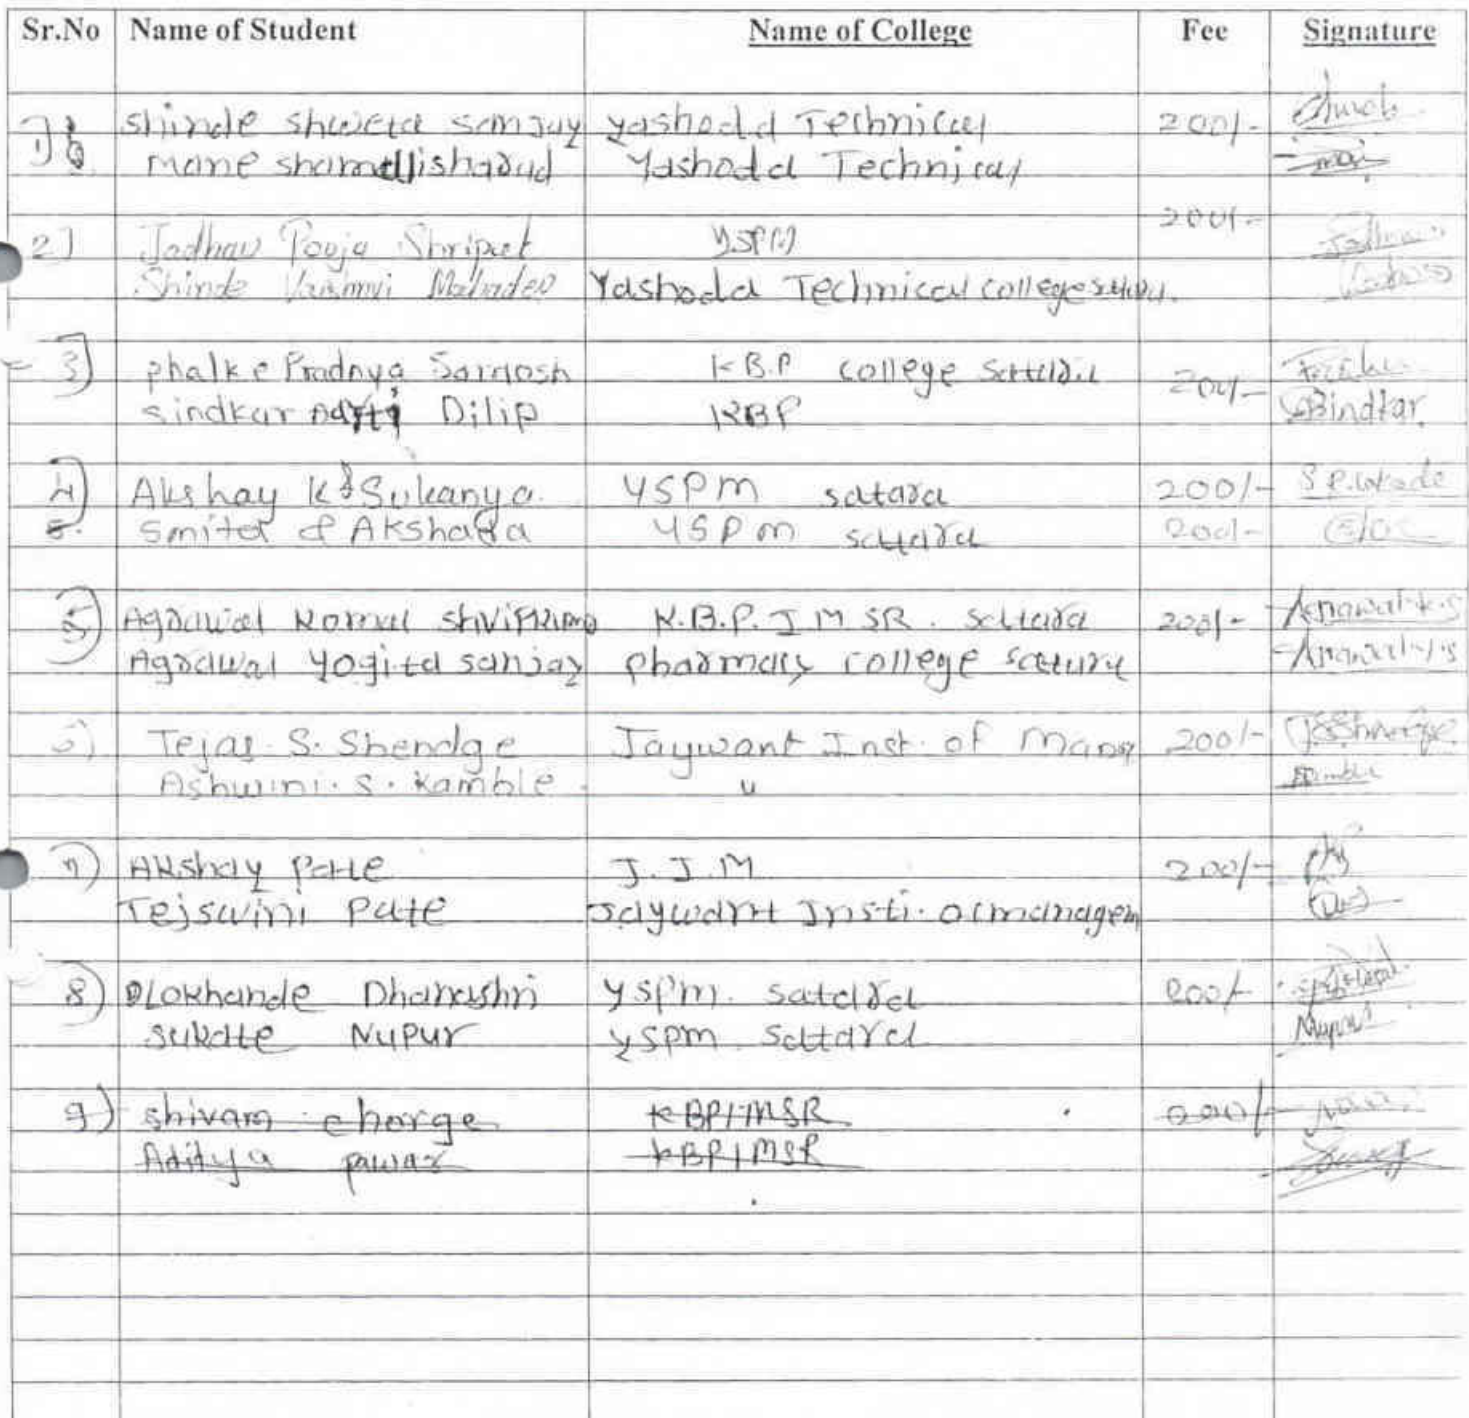 Sr.No Name of Student Name of College Fee Signature
1) shinde shweta sanjay yashoda Technical 200/-
mane sharad Yashoda Technical
200/-
2) Jadhav Pooja Shripat YSPM
Shinde Vaishnvi Mahadev Yashoda Technical college satara.
3) phalke Pradnya Santosh K.B.P college Satara 200/-
sindkar Aarti Dilip KBP Sindkar
4) Akshay K & Sukanya. YSPM satara 200/- S.P.
5. Smita & Akshada YSPM satara 200/-
5) Agrawal Komal K.B.P.IMSR. Satara 200/- Agrawal K.S
Agrawal Yogita sanjay pharmacy college satara Agrawal Y.S
6) Tejas. S. Shendge Jaywant Inst. of Mang 200/- TSShendge
Ashwini. S. Kamble. u Kamble
7) Akshay Pate J.I.M 200/-
Tejswini Pate Jaywant Insti. of managem
8) Lokhande Dhanashri YSPM. satara 200/-
Sukate Nupur YSPM. Satara Nupur
9) shivam chorge KBPIMSR 200/-
Aditya pawar KBPIMSR